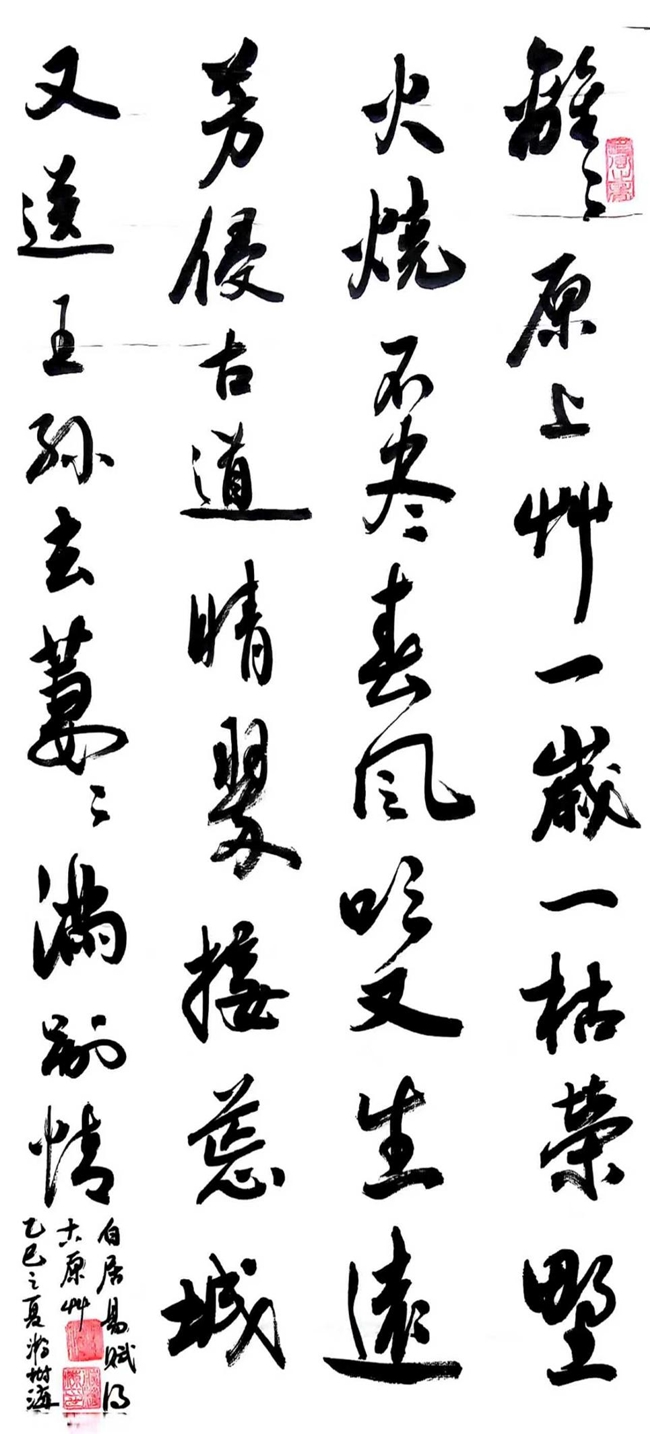 離〻原上艸一歲一枯榮野
火燒不尽春風吹又生遠
芳侵古道晴翠接荒城
又送王孫去萋〻滿別情
白居易賦得
古原艸
乙巳之夏樹海